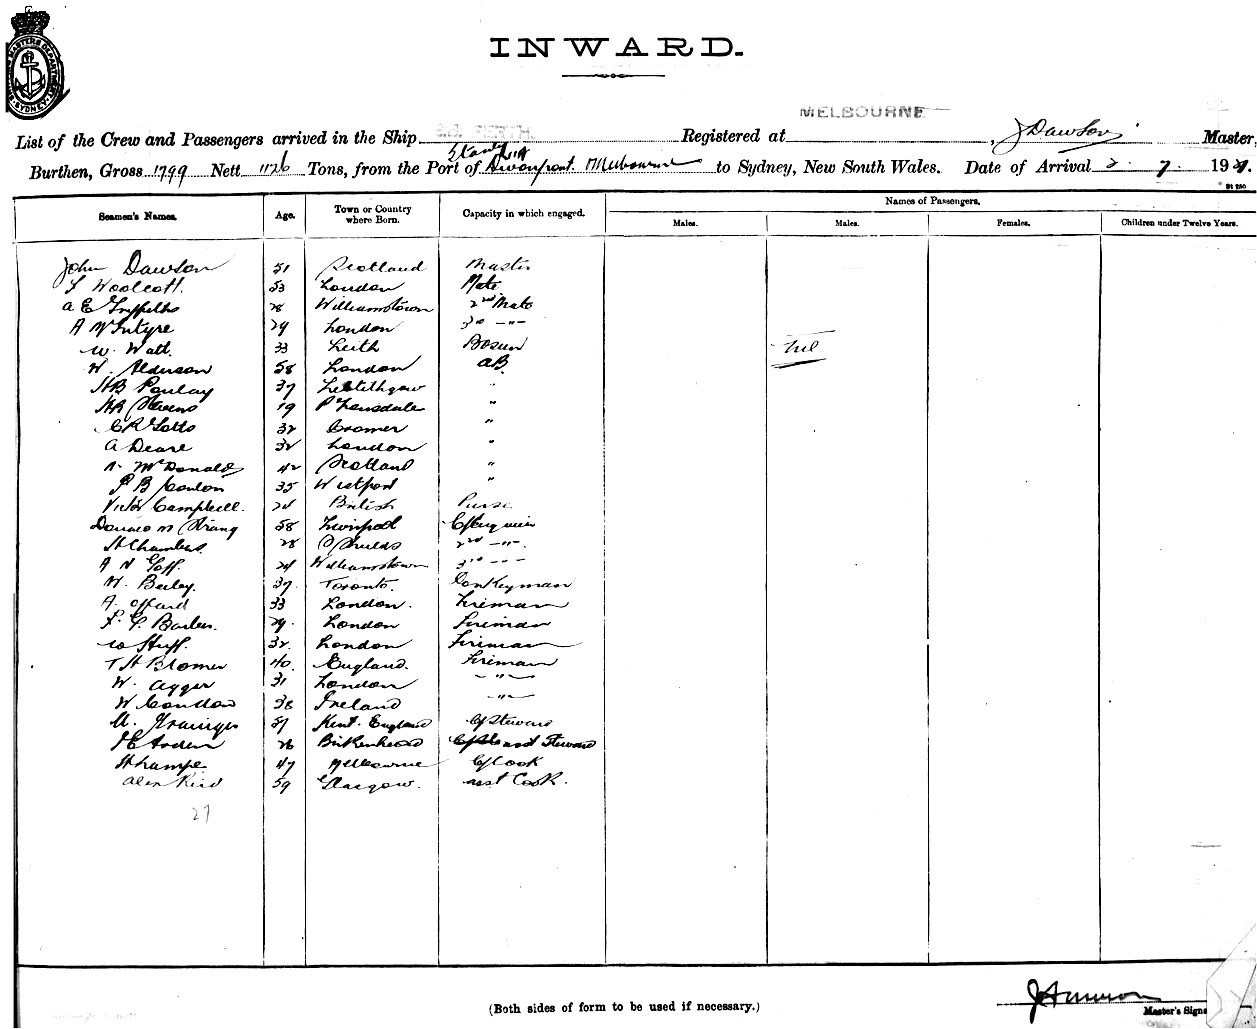 INWARD.
MELBOURNE
List of the Crew and Passengers arrived in the Ship S.S. PERTH. Registered at , J Dawson Master,
Stanley via
Burthen, Gross 1799 Nett 1126 Tons, from the Port of Devonport Melbourne to Sydney, New South Wales. Date of Arrival 2. 7. 1921.
Names of Passengers.
Seamen's Names. Age. Town or Country where Born. Capacity in which engaged. Males. Males. Females. Children under Twelve Years.
John Dawson 51 Scotland Master
Woolcott. 53 London Mate
A E Griffiths 28 Williamstown 2nd Mate
A McIntyre 29 London 3rd -"-
W. Watt. 33 Leith Bosun Nil
W. Alderson 58 London AB.
HB Paulay 37 "
HR Stevens 19 P Lonsdale "
CR Lotts 32 Cromer "
A Deare 32 London "
McDonald 42 Scotland "
P B Conlon 35 Westport "
Victor Campbell. 24 British Purser
Strang 58 Liverpool C/Engineer
H Chambers. 28 S Shields 2nd -"-
A N Goff. 24 Williamstown 3rd -"-
W. Bailey. 37 Toronto. Donkeyman
A. Offard 33 London. Fireman
F. G. Barber. 29. London Fireman
W Huff. 32. London Fireman
T H Blomer 40. England. Fireman
W. Agger 31 London -"-
W Condon 38 Ireland -"-
Grainger 51 Kent. England C/Steward
Arden 26 Birkenhead 2nd Steward
H Lampe 47 Melbourne C/Cook
Alex Reid 59 Glasgow. asst Cook.
27
J Dawson
(Both sides of form to be used if necessary.)
Master's Signa